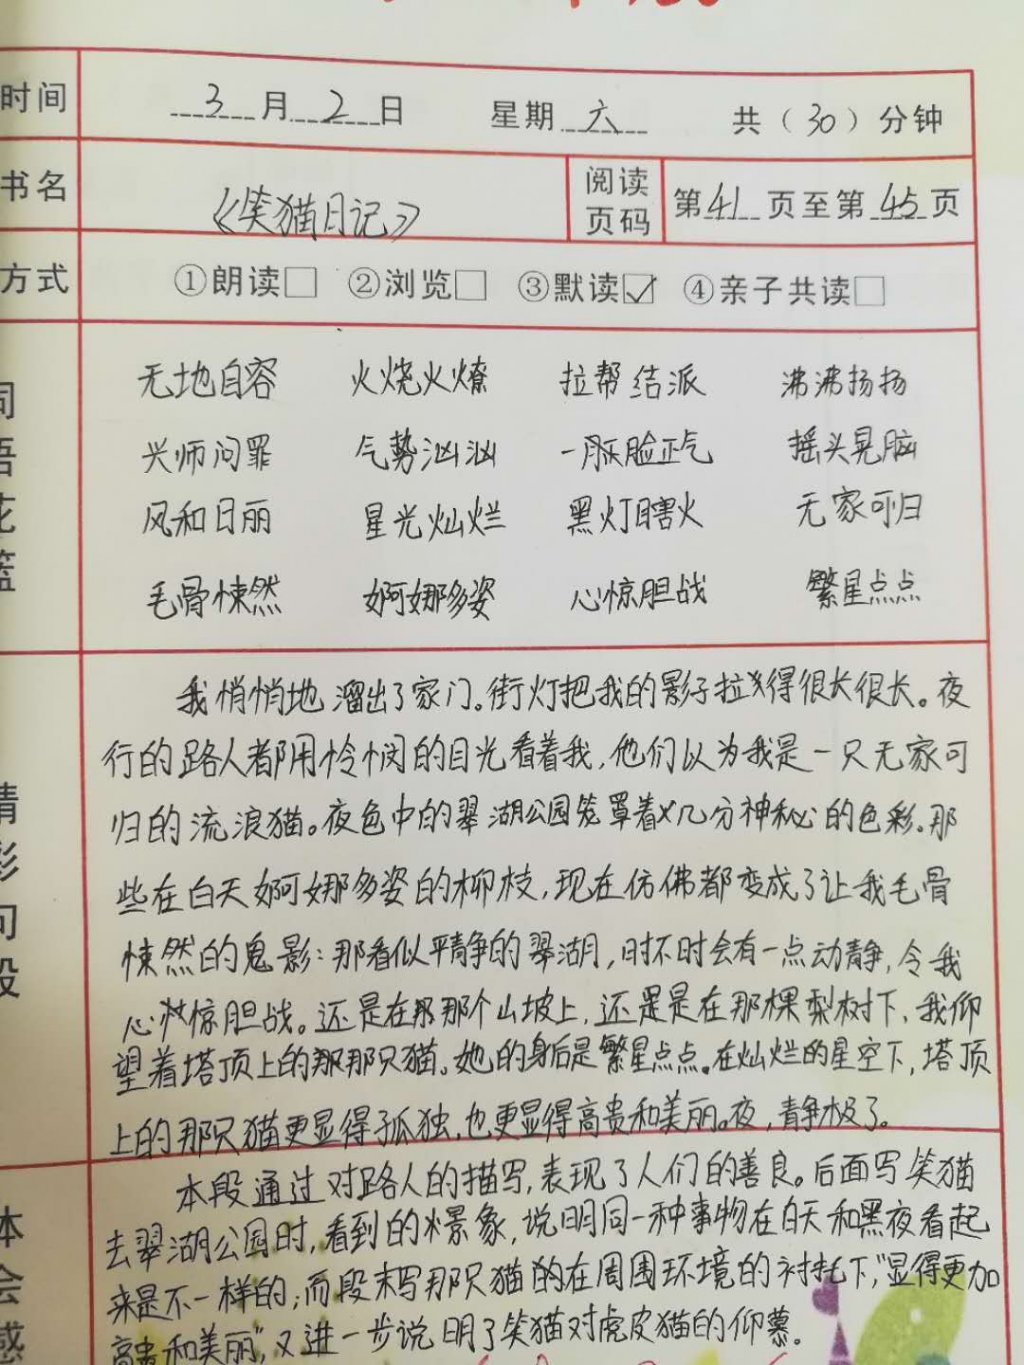 时间 3月2日 星期六 共（30）分钟
书名 《笑猫日记》 阅读页码 第41页至第45页
方式 ①朗读□ ②浏览□ ③默读☑ ④亲子共读□
词语花篮
无地自容 火烧火燎 拉帮结派 沸沸扬扬
兴师问罪 气势汹汹 一脈脸正气 摇头晃脑
风和日丽 星光灿烂 黑灯瞎火 无家可归
毛骨悚然 婀娜多姿 心惊胆战 繁星点点
精彩句段
我悄悄地溜出了家门。街灯把我的影子拉得很长很长。夜
行的路人都用怜悯的目光看着我，他们以为我是一只无家可
归的流浪猫。夜色中的翠湖公园笼罩着几分神秘的色彩。那
些在白天婀娜多姿的柳枝，现在仿佛都变成了让我毛骨
悚然的鬼影：那看似平静的翠湖，时不时会有一点动静，令我
心惊胆战。还是在那个山坡上，还是是在那棵梨树下，我仰
望着塔顶上的那那只猫。她的身后是繁星点点。在灿烂的星空下，塔顶
上的那只猫更显得孤独，也更显得高贵和美丽。夜，静极了。
体会感
本段通过对路人的描写，表现了人们的善良。后面写笑猫
去翠湖公园时，看到的景象，说明同一种事物在白天和黑夜看起
来是不一样的；而段末写那只猫的在周围环境的衬托下，“显得更加
高贵和美丽”，又进一步说明了笑猫对虎皮猫的仰慕。